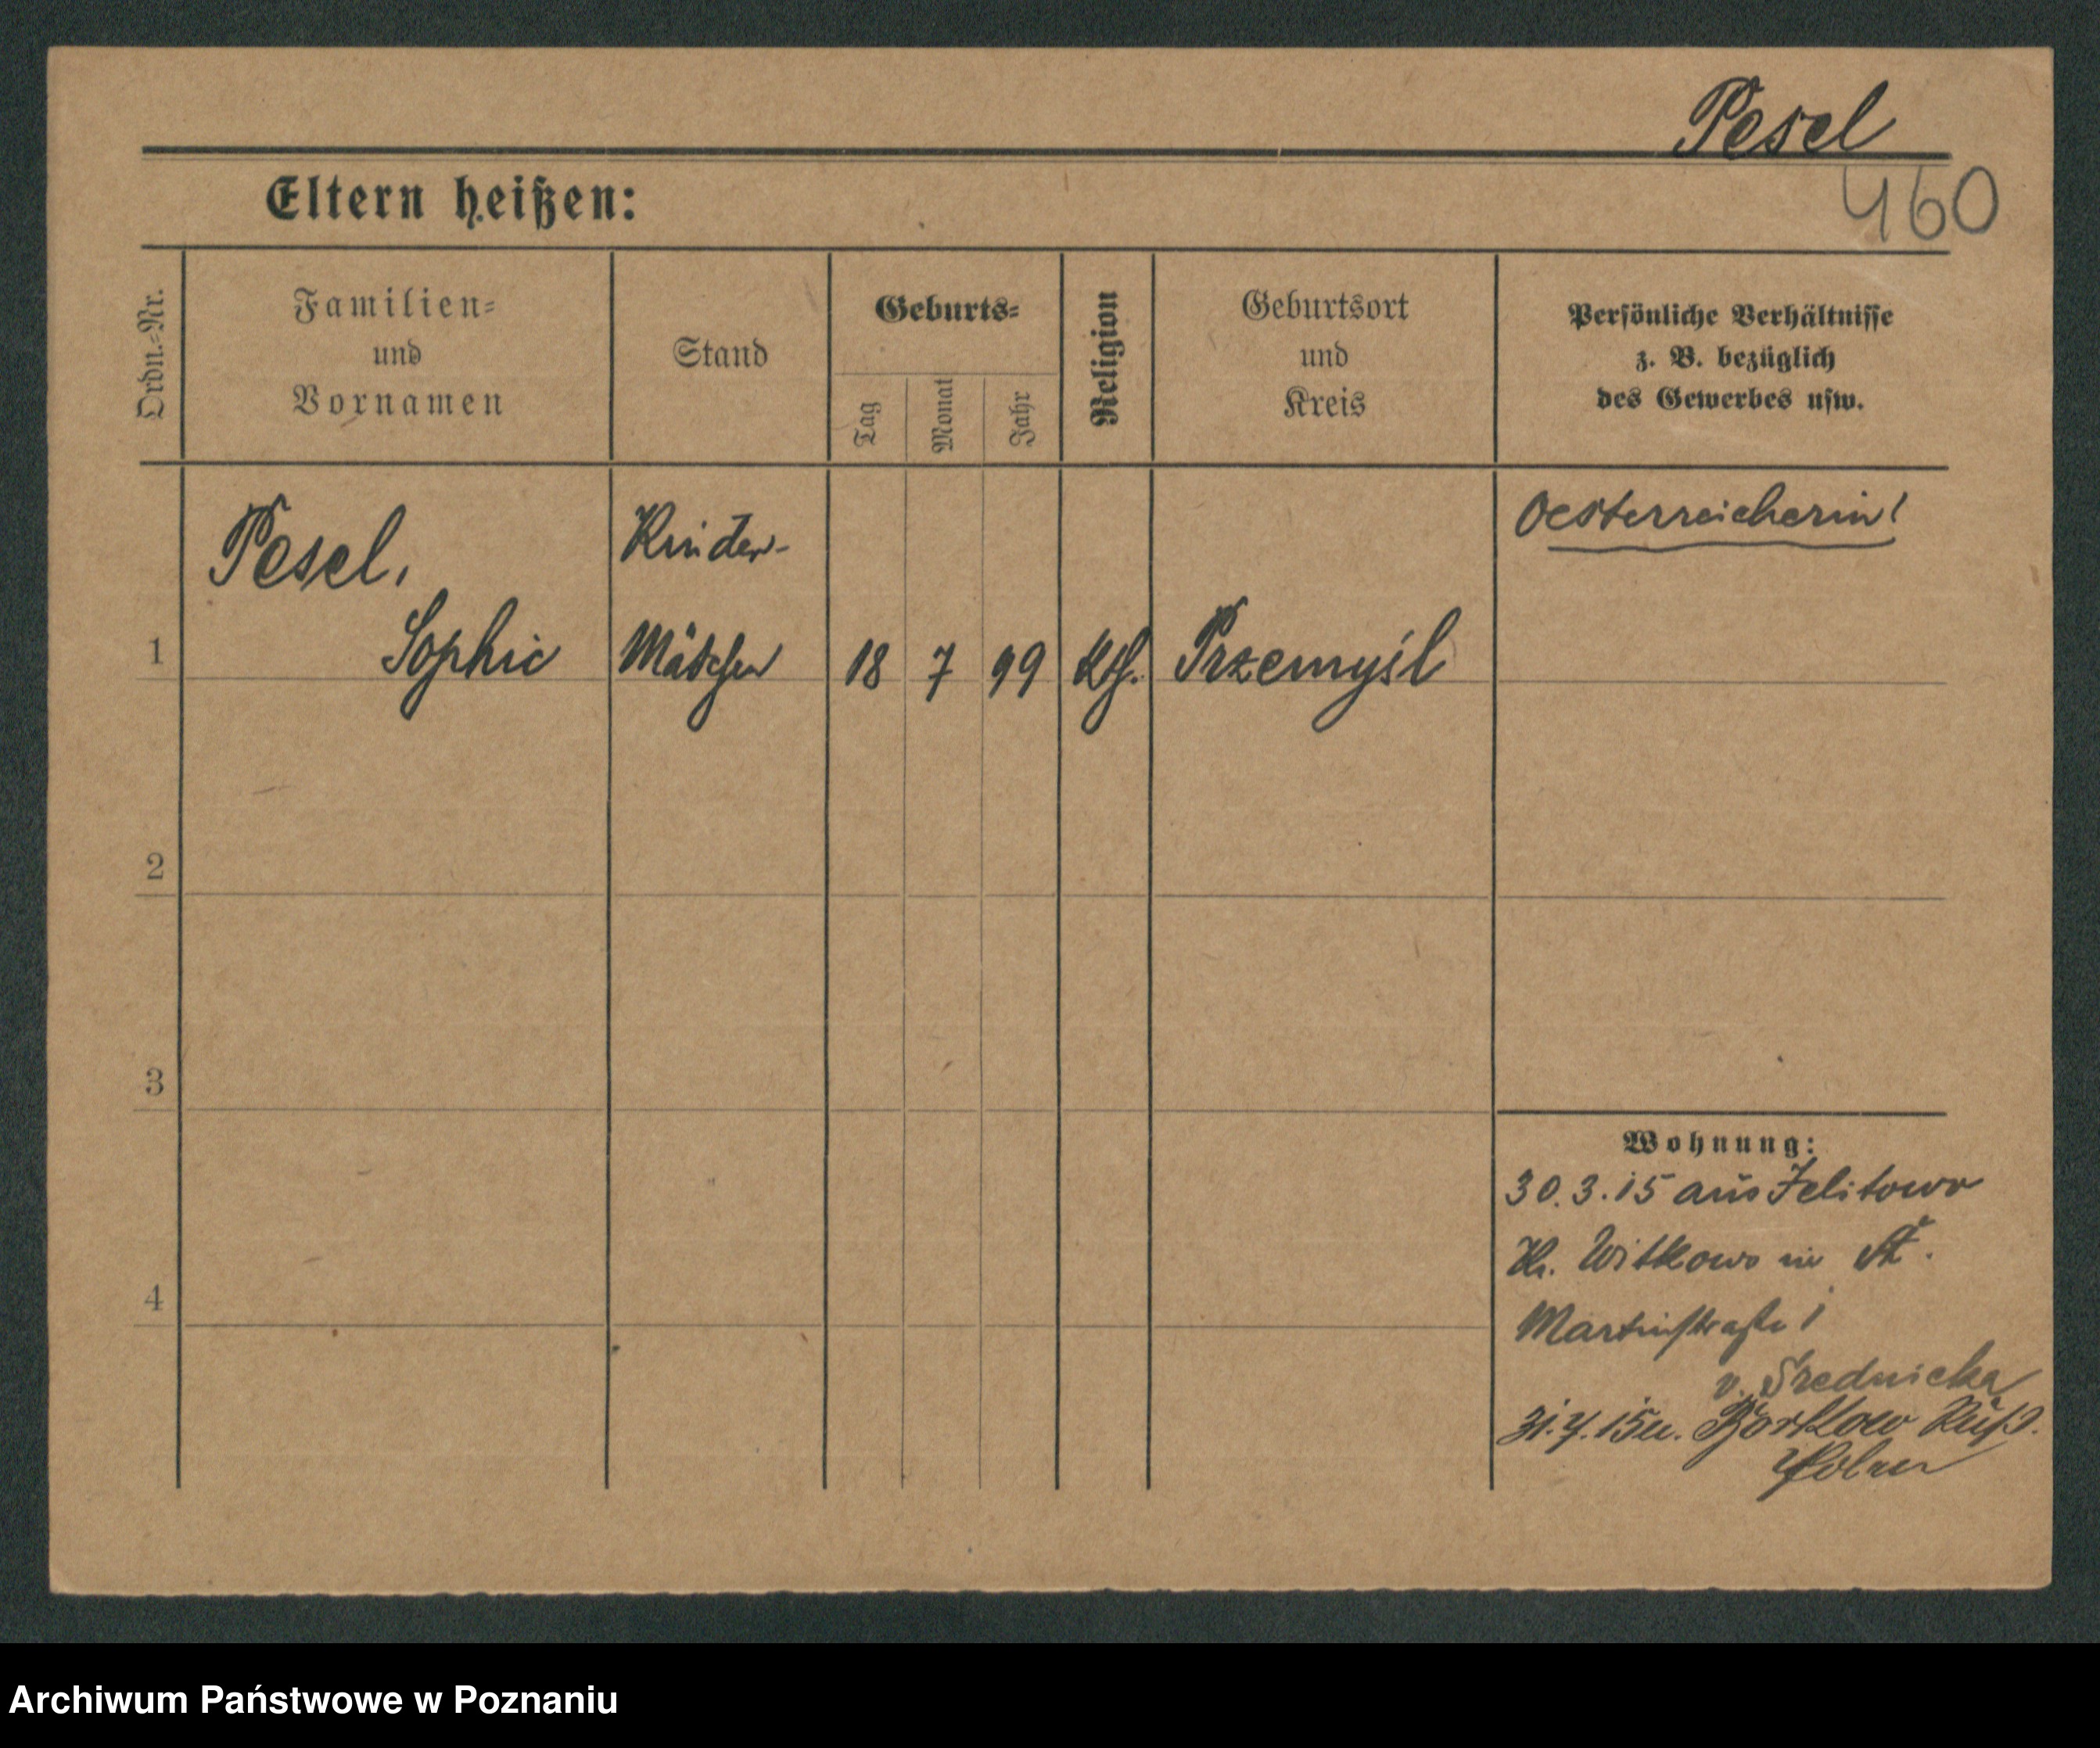 Pesel
460
Eltern heißen:
Ordn.-Nr.
Familien-
und
Vornamen
Stand
Geburts-
Tag
Monat
Jahr
Religion
Geburtsort
und
Kreis
Persönliche Verhältnisse
z. B. bezüglich
des Gewerbes usw.
1
Pesel,
Sophie
Kinder-
Mädchen
18 7 99
Kth.
Przemyśl
Oesterreicherin!
2
3
4
Wohnung:
30.3.15 aus Jelitowo
Kr. Witkowo in
Martinstraße 1
v. Srednicka
31.7.15 n. Borkow Russ.
Polen
Archiwum Państwowe w Poznaniu